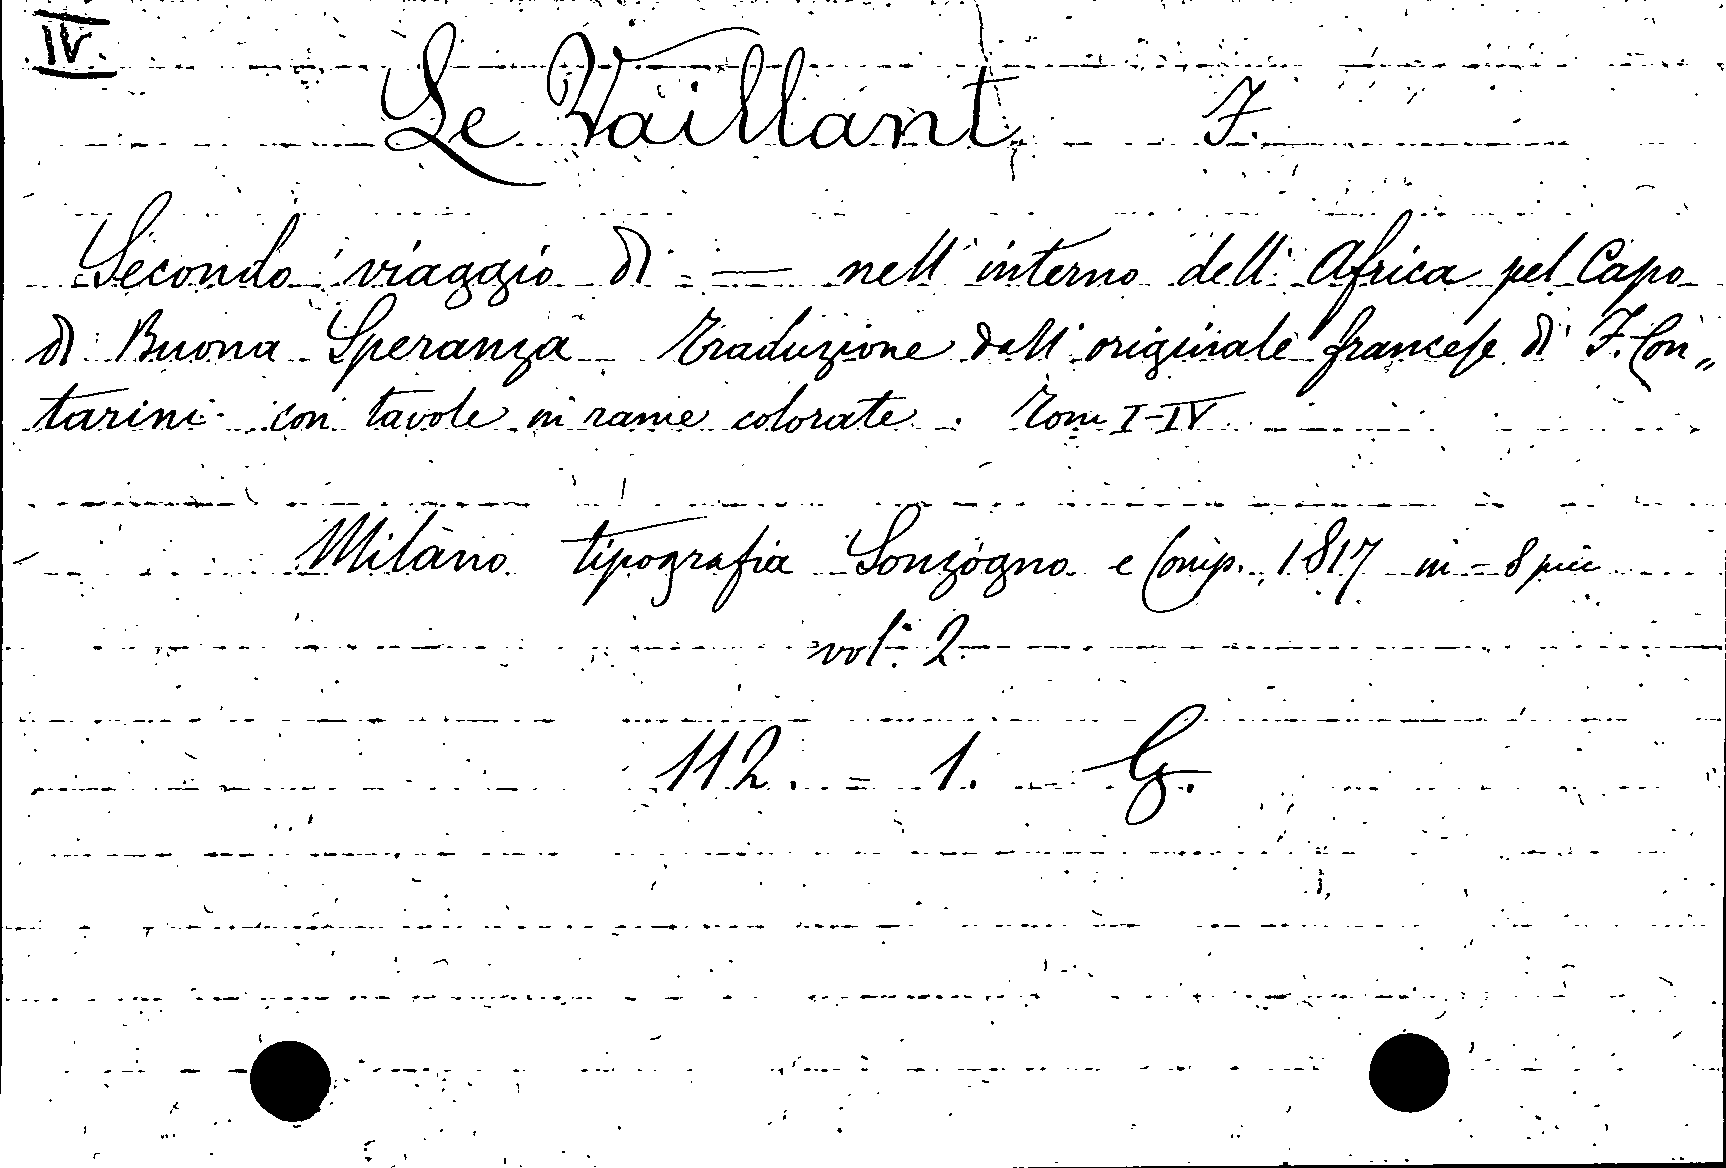 IV.
Le Vaillant, F.
Secondo viaggio di — nell' interno dell' Africa pel Capo
di Buona Speranza. Traduzione dall' originale francese di F. Con„
tarini con tavole in rame colorate. Tom I-IV
Milano tipografia Sonzogno e Comp. 1817 in-8 picc
vol. 2.
112. = 1. G.